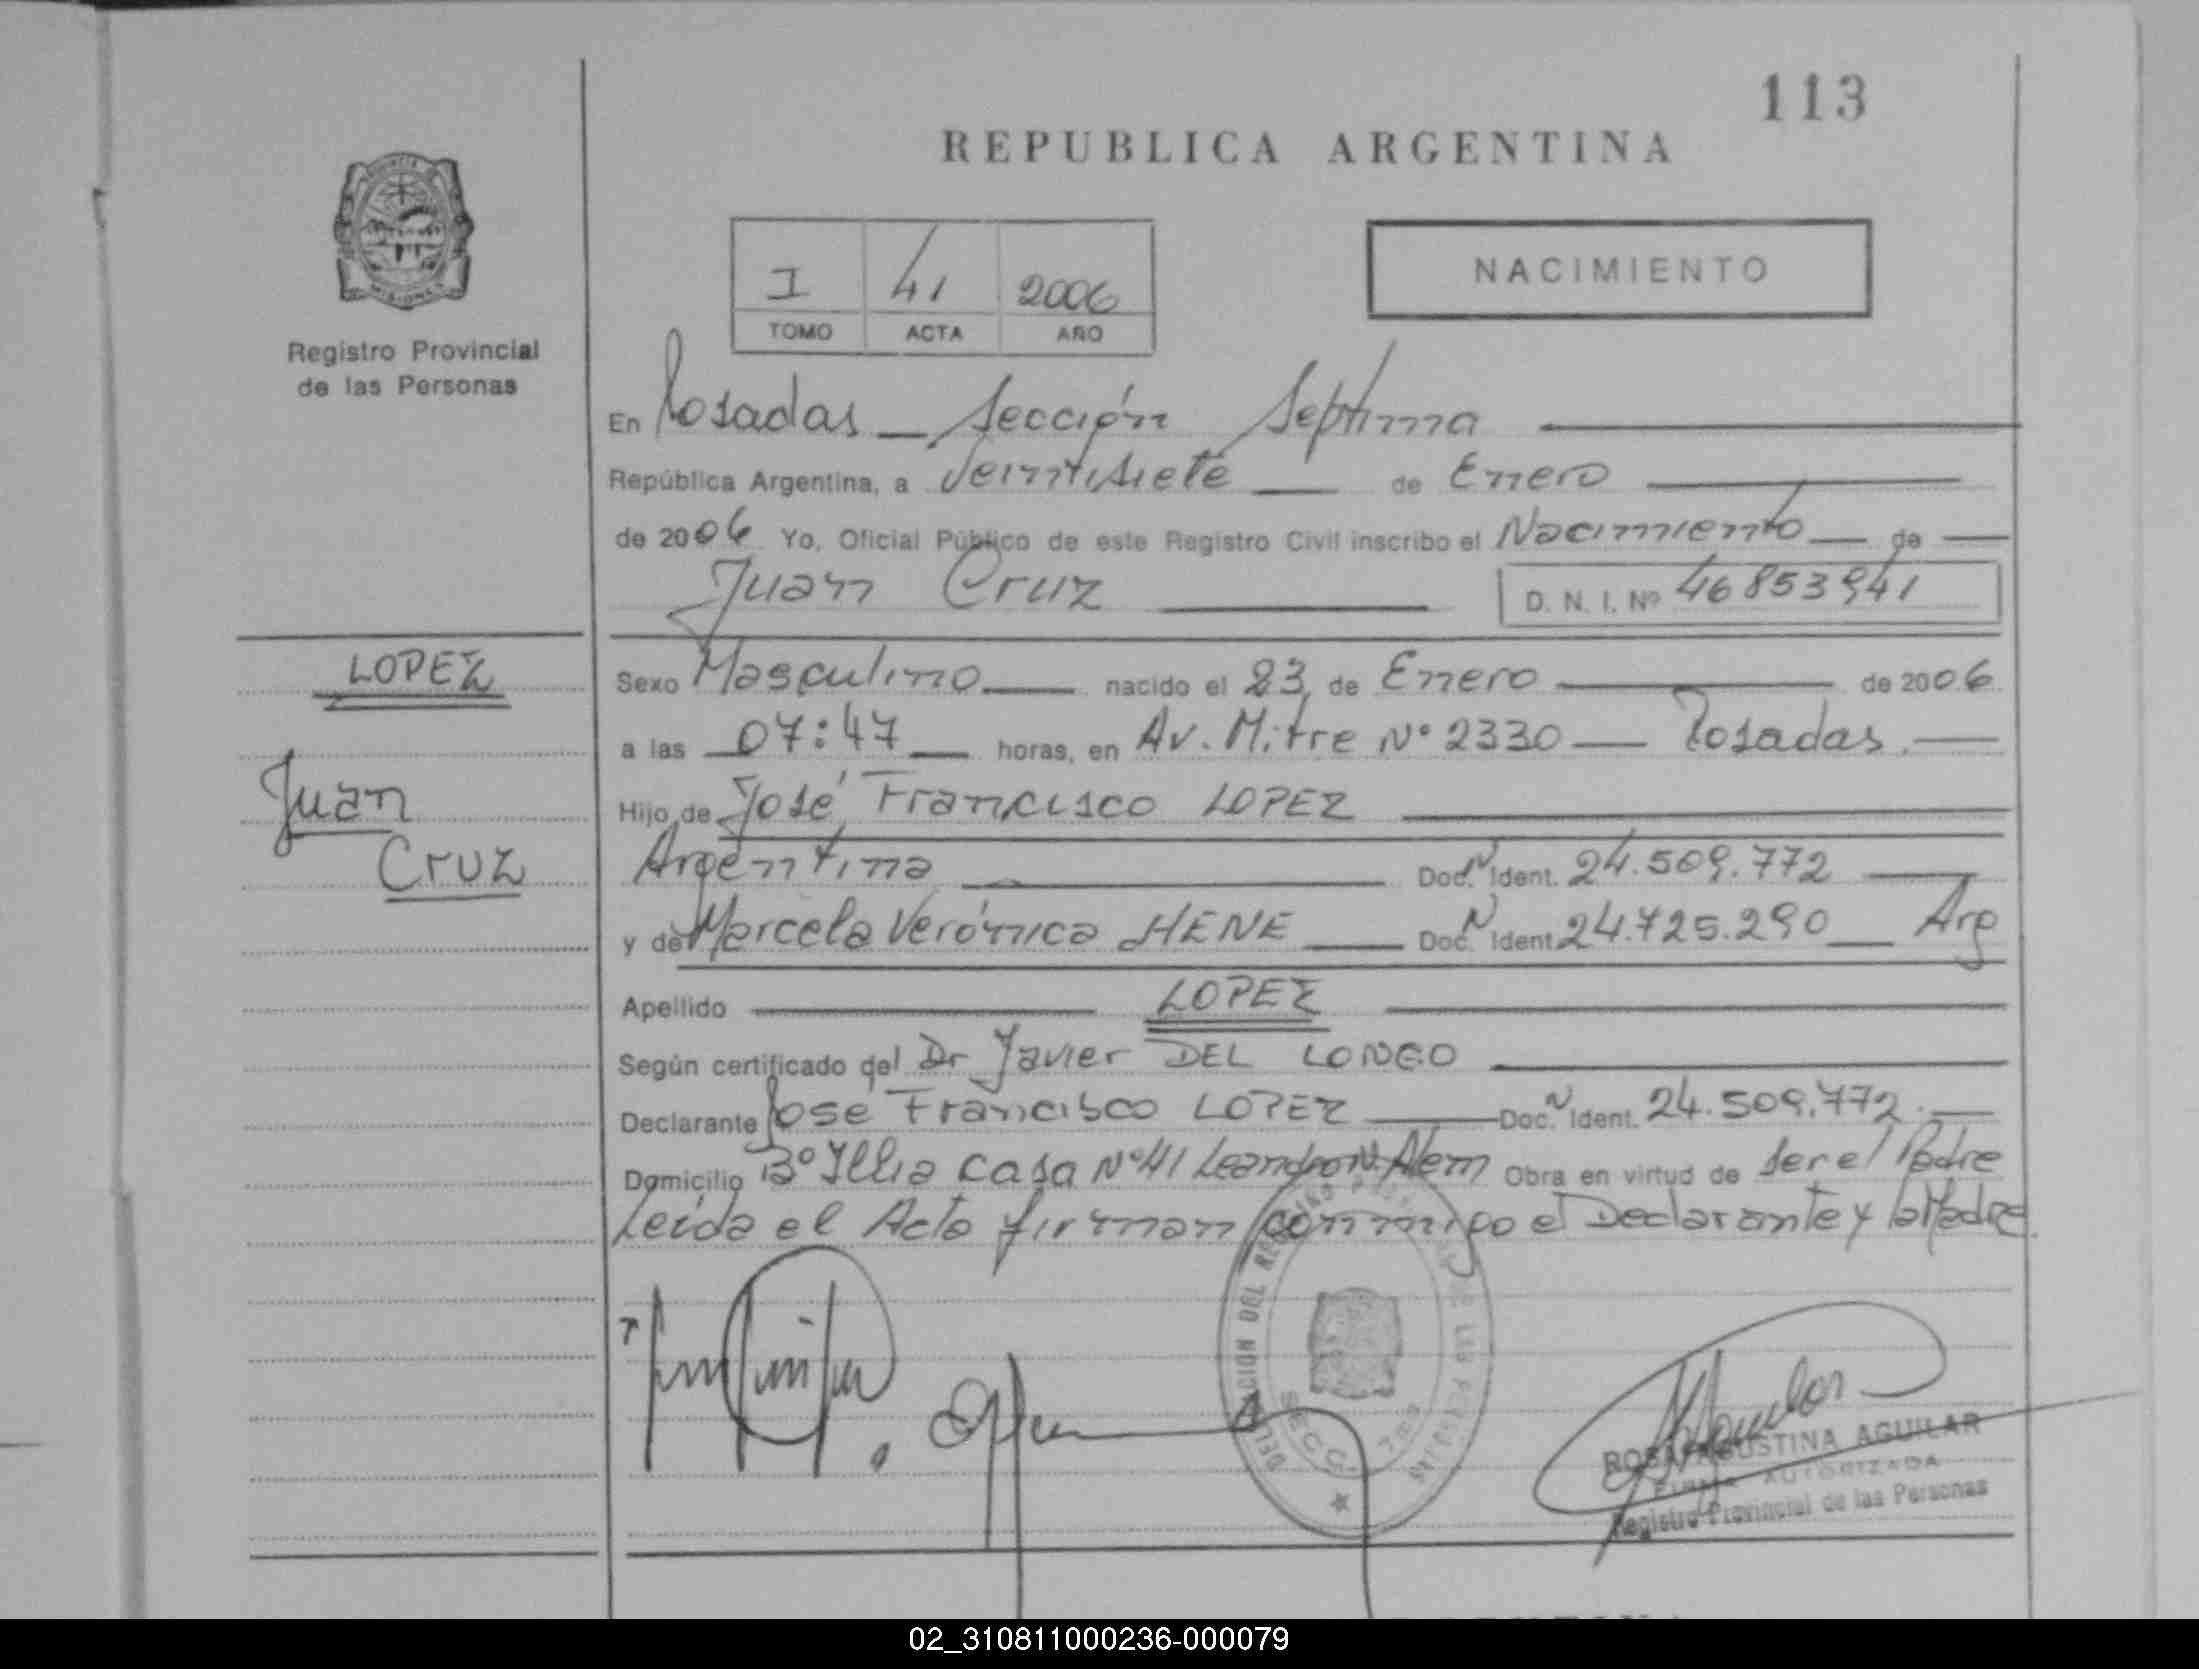 113
REPUBLICA ARGENTINA
PROVINCIA
MISIONES
Registro Provincial
de las Personas
I 41 2006
TOMO ACTA AÑO
NACIMIENTO
En Posadas _ Sección Septima
República Argentina, a Veintisiete de Enero
de 2006 Yo, Oficial Público de este Registro Civil inscribo el Nacimiento de
Juan Cruz D. N. I. Nº 46853941
LOPEZ
Juan
Cruz
Sexo Masculino nacido el 23 de Enero de 2006
a las 07:47 horas, en Av. Mitre Nº 2330 Posadas.
Hijo de José Francisco LOPEZ
Argentina Doc. N Ident. 24.509.772
y de Marcela Verónica HENE Doc. N Ident. 24.725.290 Arg
Apellido LOPEZ
Según certificado del Dr Javier DEL LONGO
Declarante José Francisco LOPEZ Doc. N Ident. 24.509.772.
Domicilio Bº Illia Casa Nº41 Leandro N. Alem Obra en virtud de ser el Padre
Leída el Acta firman conmigo el Declarante y la Madre.
SECC.
ROSA AGUSTINA AGUILAR
FIRMA AUTORIZADA
Registro Provincial de las Personas
02_310811000236-000079